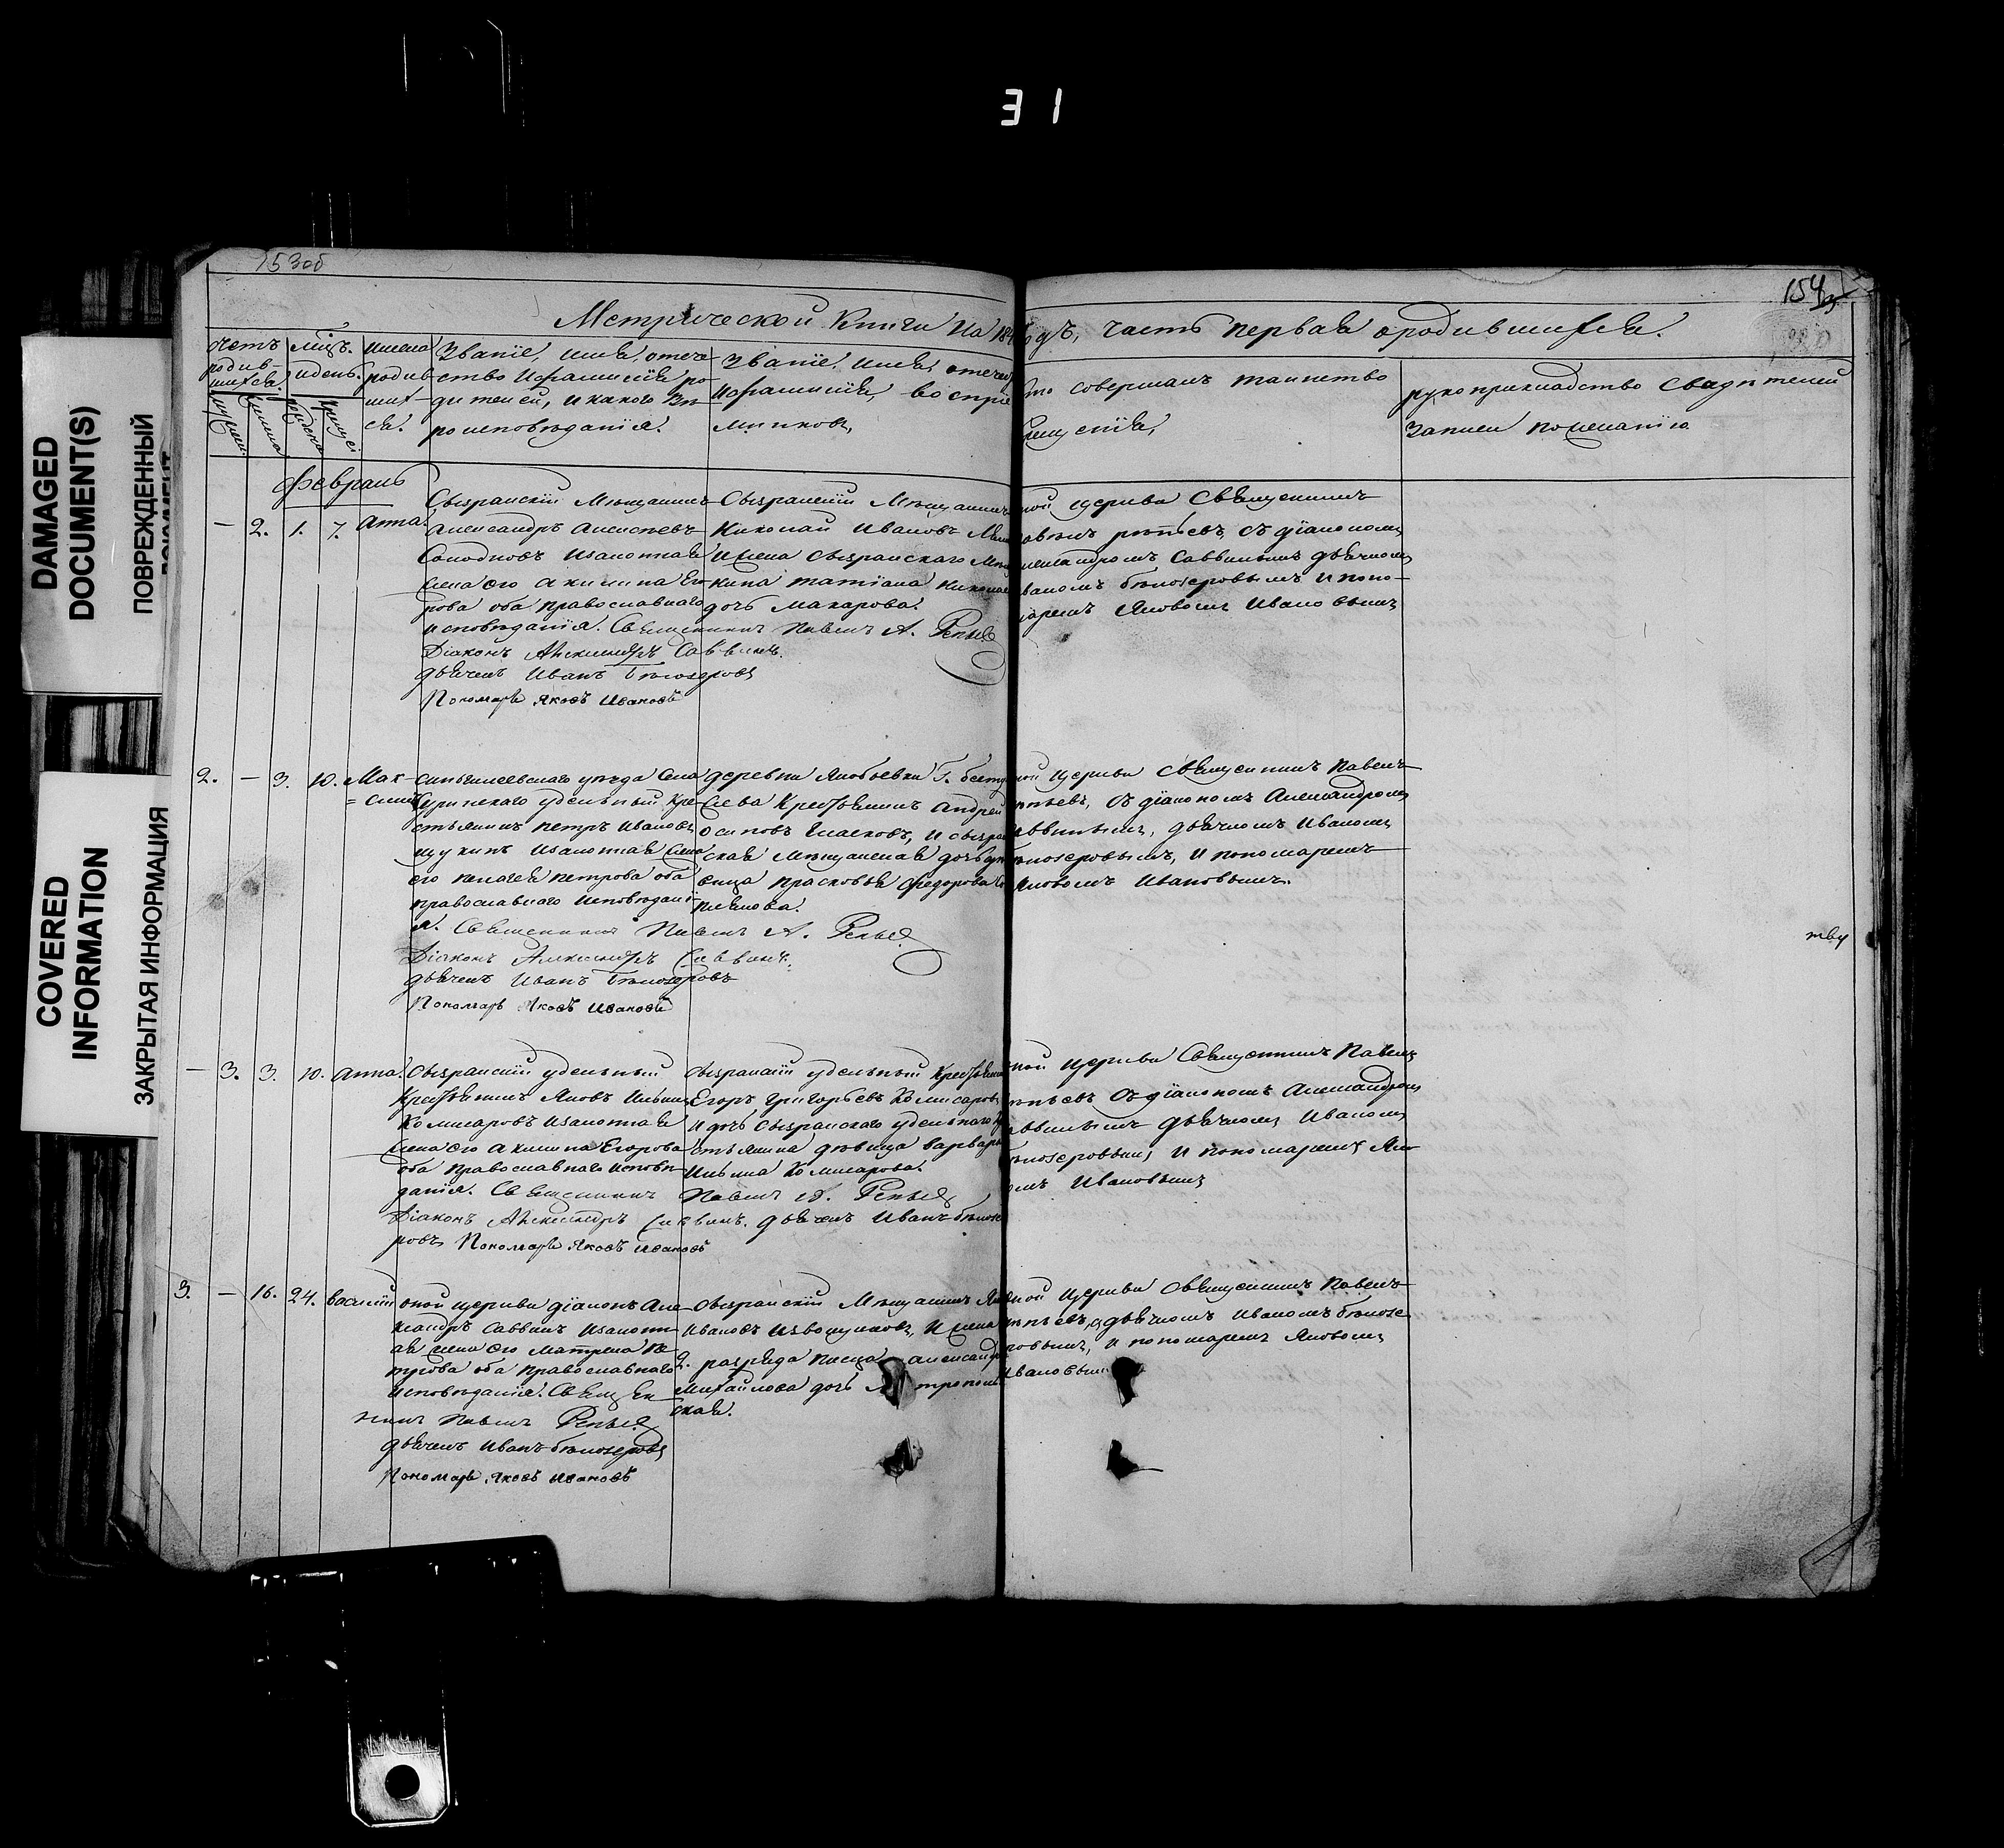 31
DAMAGED
DOCUMENT(S)
ПОВРЕЖДЕННЫЙ
COVERED
INFORMATION
ЗАКРЫТАЯ ИНФОРМАЦИЯ
153об
154
Метрической Книги На 184 одъ, часть первая о родившихся.
Счетъ родив-шихся.
Мцъ. и день.
Имена родив-ших-ся.
Званіе, имя, отече-
ство И фамилія ро-
дителей, и какого вѣ-
роисповѣданія.
Званіе, имя, отече
И фамилія, воспріе
мниковъ,
то совершалъ таинство
рукоприкладство свидѣтелей
записи по желанію
Февраль
- 2. 1. 7. Анна.
Сызранскій Мѣщанинъ
Александръ Алексѣевъ
Солодновъ И законная
жена его Акилина Его
рова оба православнаго
исповѣданія. Священникъ Павелъ А. Репьев
Діаконъ Александръ Саввинъ.
дьячекъ Иванъ Бѣлозеровъ
Пономарь Яковъ Ивановъ
Сызранскій Мѣщанинъ
Николай Ивановъ
И жена Сызранскаго Мѣщ
нина татіана Николае
дочь Макарова.
ной церкви Священникъ
авелъ рѣпьевъ, съ діакономъ
лександромъ Саввинымъ дьячкомъ
ваномъ бѣлозеровымъ и поно-
маремъ Яковомъ Ивановымъ
2. - 3. 10. Мак-симъ
Синьгилеевскаго уѣзда Села
удельный Кре
стьянинъ петръ Ивановъ
щукинъ И законная жена
его пелагея петрова оба
православнаго исповѣдані-
я. Священникъ Павелъ А. Репьев
Діаконъ Александръ Саввинъ.
дьячекъ Иванъ Бѣлозеровъ
Пономарь Яковъ Ивановъ
деревни Г.
Крестьянинъ Андрей
осиповъ и сызран
ская Мѣщанская дочь дѣ
вица прасковья Федорова
ной церкви священникъ павелъ
рѣпьевъ, съ діакономъ Александромъ
аввинымъ, дьячкомъ Иваномъ
бѣлозеровымъ, и пономаремъ
Яковомъ Ивановымъ.
- 3. 3. 10. Анна.
Сызранскій удельный
Крестьянинъ Яковъ Ильинъ
Комисаровъ И законная
жена его Акилина Егорова
оба православнаго исповѣ
данія. Священникъ Павелъ А. Репьев
Діаконъ Александръ Саввинъ. дьячекъ Иванъ бѣлозе
ровъ Пономарь Яковъ Ивановъ
Сызранскій удельный Крестьянинъ
Егоръ Григорьевъ Комисаровъ
И дочь Сызранскаго удельнаго Кре
стьянина дѣвица варвара
Ильина Комисарова.
ной церкви Священникъ Павелъ
рѣпьевъ съ діакономъ Александромъ
аввинымъ дьячкомъ Иваномъ
бѣлозеровымъ и пономаремъ Яко-
омъ Ивановымъ
3. - 16. 24. Василій
оной церкви діаконъ Але-
ксандръ Саввинъ И законн-
ая жена его Матрена Пе-
трова оба православнаго
исповѣданія. Священ
никъ Павелъ Репьев
дьячекъ Иванъ бѣлозеровъ
Пономарь Яковъ Ивановъ
Сызранскій Мѣщанинъ
Ивановъ Извощиковъ, И жена
2. разряда писца александра
Михайлова дочь Митрополь
ская.
ной церкви Священникъ Павелъ
рѣпьевъ, съ дьячкомъ Иваномъ бѣлозе
ровымъ, и пономаремъ Яковомъ
Ивановым
тву